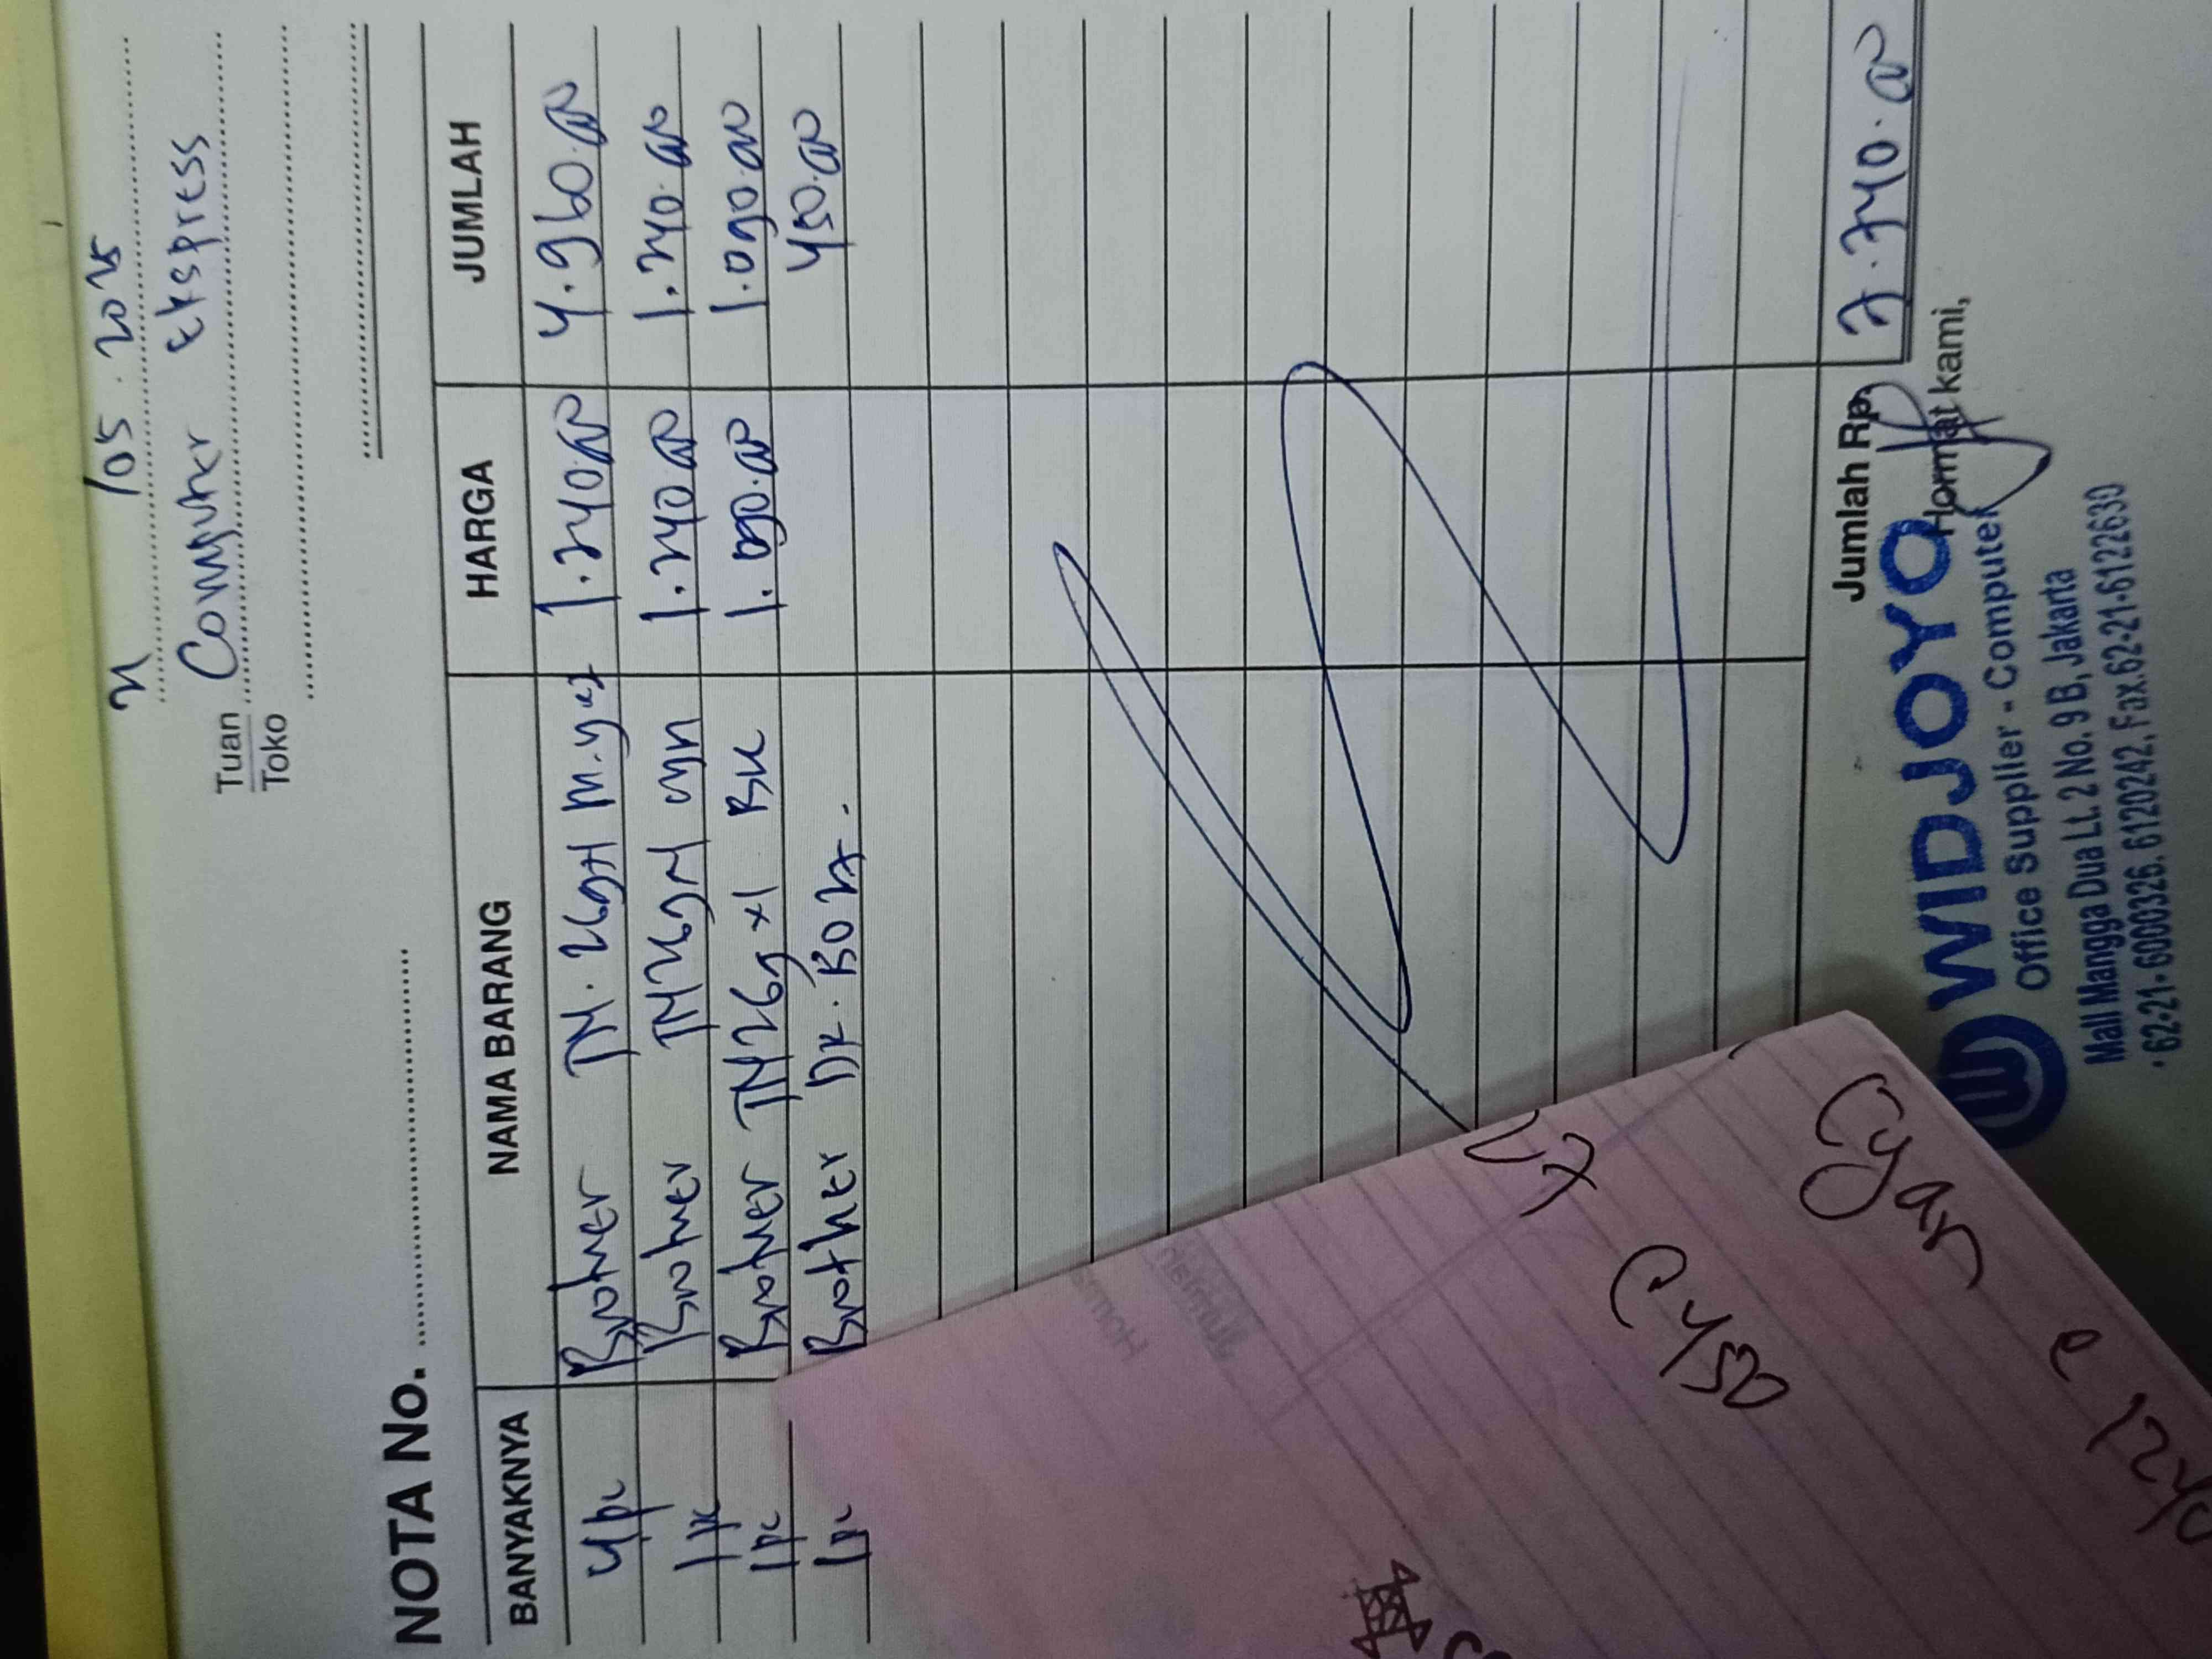 /05.2025
Tuan Computer Ekspress
Toko
NOTA No.
BANYAKNYA NAMA BARANG HARGA JUMLAH
4 pc Brother TN.269H M.Y 1.240.00 4.960.00
1 pc Brother TN269H Cyn 1.240.00 1.240.00
1 pc Brother TN269XL BK 1.090.00 1.090.00
1 pc Brother Dr. 450.00
Jumlah Rp. 7.740.00
Hormat kami,
WIDJOYO
Office Supplier - Computer
Mall Mangga Dua Lt. 2 No. 9 B, Jakarta
62-21-6000326. 6120242, Fax.62-21-6122630
Cyan
1240